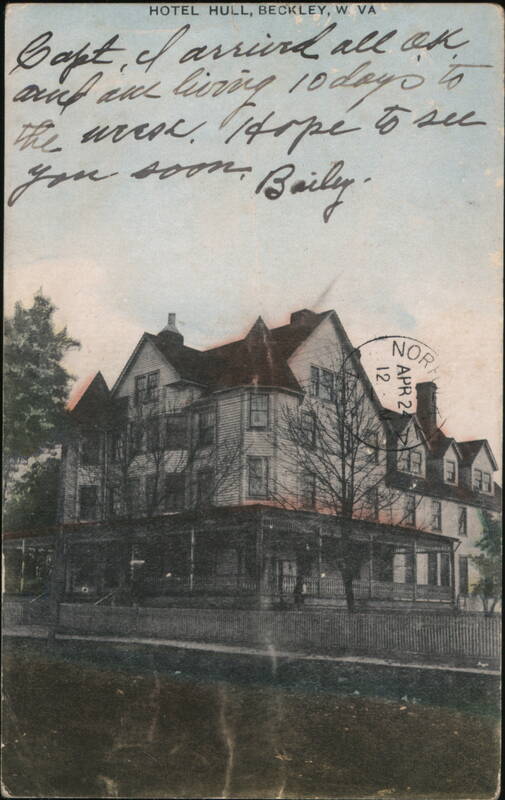 HOTEL HULL, BECKLEY, W. VA
Capt, I arrived all OK
and am living 10 days to
the week. Hope to see
you soon.
Baily.
NOR
APR 24
12